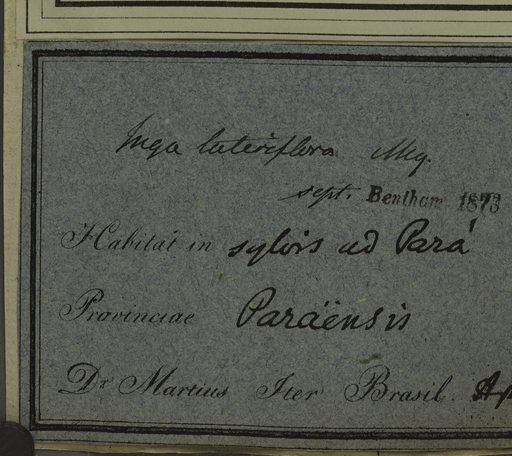 Inga lateriflora Miq.
sept. Bentham 1873
Habitat in sylvis ad Pará
Provinciae Paraënsis
Dr Martius Iter Brasil.